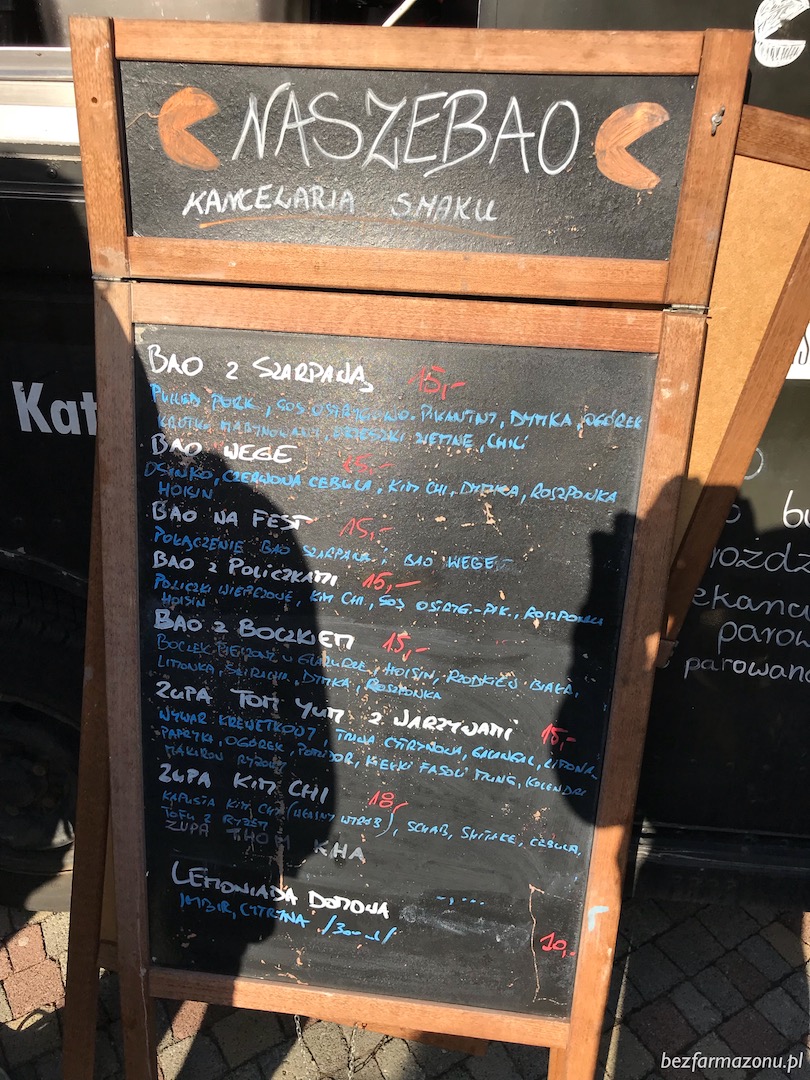 NASZEBAO
KANCELARIA SMAKU
BAO Z SZARPANĄ 15,-
PULLED PORK, SOS OSTRYGOWO-PIKANTNY, DYMKA, OGÓREK
KRÓTKO MARYNOWANY, ORZESZKI ZIEMNE, CHILI
BAO WEGE 15,-
CZERWONA CEBULA, KIM CHI, DYMKA, ROSZPONKA
HOISIN
BAO NA FEST 15,-
POŁĄCZENIE BAO SZARPANA, BAO WEGE
BAO Z POLICZKAMI 15,-
POLICZKI WIEPRZOWE, KIM CHI, SOS OSTRYG-PIK., ROSZPONKA
HOISIN
BAO Z BOCZKIEM 15,-
BOCZEK PIECZONY W HOISIN, RZODKIEW BIAŁA,
LIMONKA, SRIRACHA, DYMKA, ROSZPONKA
ZUPA TOM YUM Z WARZYWAMI 15,-
WYWAR KREWETKOWY, TRAWA CYTRYNOWA, GALANGAL, LIMONKA
PAPRYKA, OGÓREK, POMIDOR, KIEŁKI FASOLI MUNG, KOLENDRA
MAKARON RYŻOWY
ZUPA KIM CHI 18,
KAPUSTA KIM CHI (WŁASNY WYRÓB), SCHAB, SHITAKE, CEBULA,
TOFU Z RYŻEM
ZUPA THOM KHA
LEMONIADA DOMOWA
IMBIR, CYTRYNA /300 ml/ 10,-
Kat
bezfarmazonu.pl